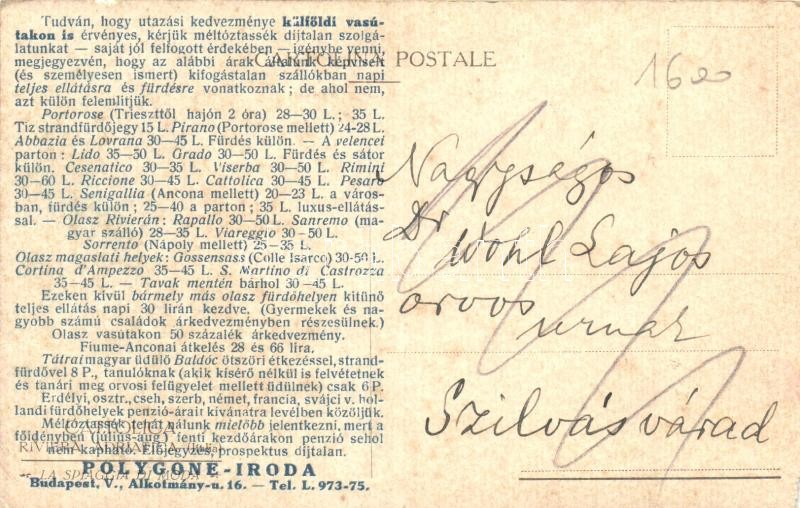 Tudván, hogy utazási kedvezménye külföldi vasú-
takon is érvényes, kérjük méltóztassék díjtalan szolgá-
latunkat — saját jól felfogott érdekében — igénybe venni,
megjegyezvén, hogy az alábbi árak általunk képviselt
(és személyesen ismert) kifogástalan szállókban napi
teljes ellátásra és fürdésre vonatkoznak; de ahol nem,
azt külön felemlitjük.
Portorose (Trieszttől hajón 2 óra) 28—30 L.; 35 L.
Tiz strandfürdőjegy 15 L. Pirano (Portorose mellett) 24-28 L.
Abbazia és Lovrana 30—45 L. Fürdés külön. — A velencei
parton: Lido 35—50 L. Grado 30—50 L. Fürdés és sátor
külön. Cesenatico 30—35 L. Viserba 30—50 L. Rimini
30—60 L. Riccione 30—45 L. Cattolica 30—45 L. Pesaro
30—45 L. Senigallia (Ancona mellett) 20—23 L. a város-
ban, fürdés külön; 25—40 a parton; 35 L. luxus-ellátás-
sal. — Olasz Rivierán: Rapallo 30—50 L. Sanremo (ma-
gyar szálló) 28—35 L. Viareggio 30—50 L.
Sorrento (Nápoly mellett) 25—35 L.
Olasz magaslati helyek: Gossensass (Colle Isarco) 30-50 L.
Cortina d'Ampezzo 35—45 L. S. Martino di Castrozza
35—45 L. — Tavak mentén bárhol 30—45 L.
Ezeken kívül bármely más olasz fürdőhelyen kitünő
teljes ellátás napi 30 lirán kezdve. (Gyermekek és na-
gyobb számú családok árkedvezményben részesülnek.)
Olasz vasutakon 50 százalék árkedvezmény.
Fiume-Anconai átkelés 28 és 66 lira.
Tátrai magyar üdülő Baldóc ötszöri étkezéssel, strand-
fürdővel 8 P., tanulóknak (akik kísérő nélkül is felvétetnek
és tanári meg orvosi felügyelet mellett üdülnek) csak 6 P.
Erdélyi, osztr., cseh, szerb, német, francia, svájci v. hol-
landi fürdőhelyek penzió-árait kívánatra levélben közöljük.
Méltóztassék tehát nálunk mielőbb jelentkezni, mert a
főidényben (július-aug.) fenti kezdőárakon penzió sehol
nem kapható. Előjegyzés, prospektus díjtalan.
POLYGONE-IRODA
Budapest, V., Alkotmány-u. 16. — Tel. L. 973-75.
CATTOLICA
RIVIERA ADRIATICA
LA SPIAGGIA DI MODA
CARTOLINA POSTALE
Nagyságos
Dr Wohl Lajos
orvos
urnak
Szilvásvárad